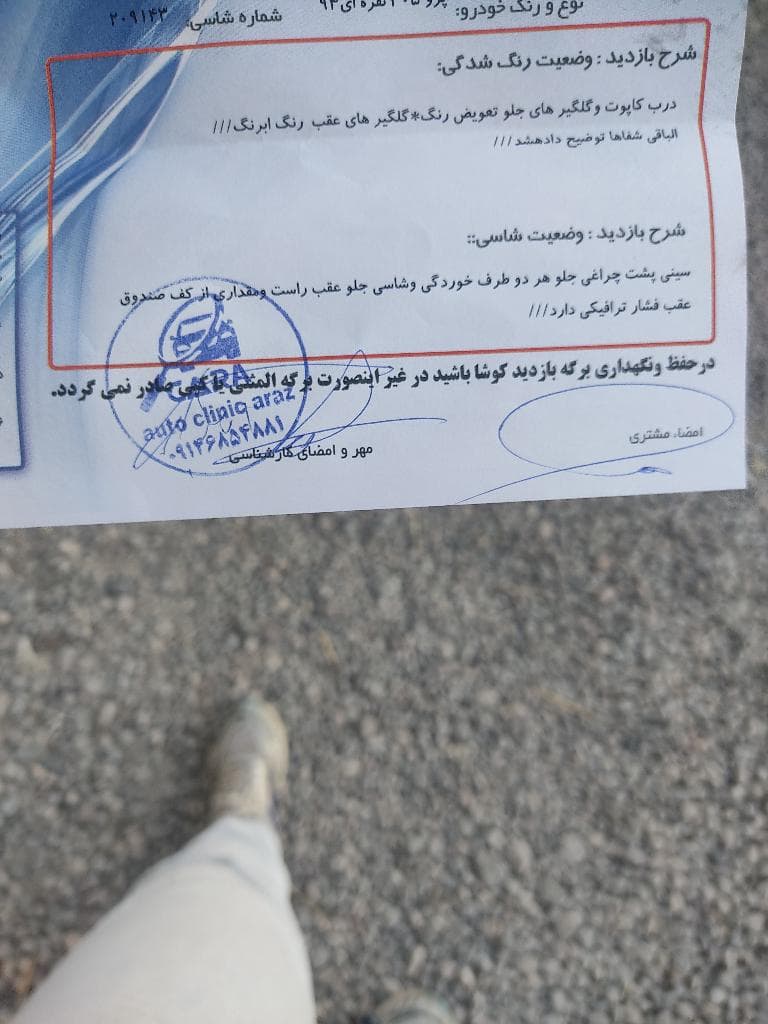 نوع و رنگ خودرو: نقره ای ۹۴
شماره شاسی: ۲۰۹۱۴۳
شرح بازدید : وضعیت رنگ شدگی:
درب کاپوت وگلگیر های جلو تعویض رنگ*گلگیر های عقب رنگ ابرنگ///
الباقی شفاها توضیح دادهشد///
شرح بازدید : وضعیت شاسی::
سینی پشت چراغی جلو هر دو طرف خوردگی وشاسی جلو عقب راست ومقداری از کف صندوق
عقب فشار ترافیکی دارد///
درحفظ ونگهداری برگه بازدید کوشا باشید در غیر اینصورت برگه المثنی یا کپی صادر نمی گردد.
ARA
auto clinic araz
۰۹۱۴۶۸۵۴۸۸۱
مهر و امضای کارشناسی
امضاء مشتری